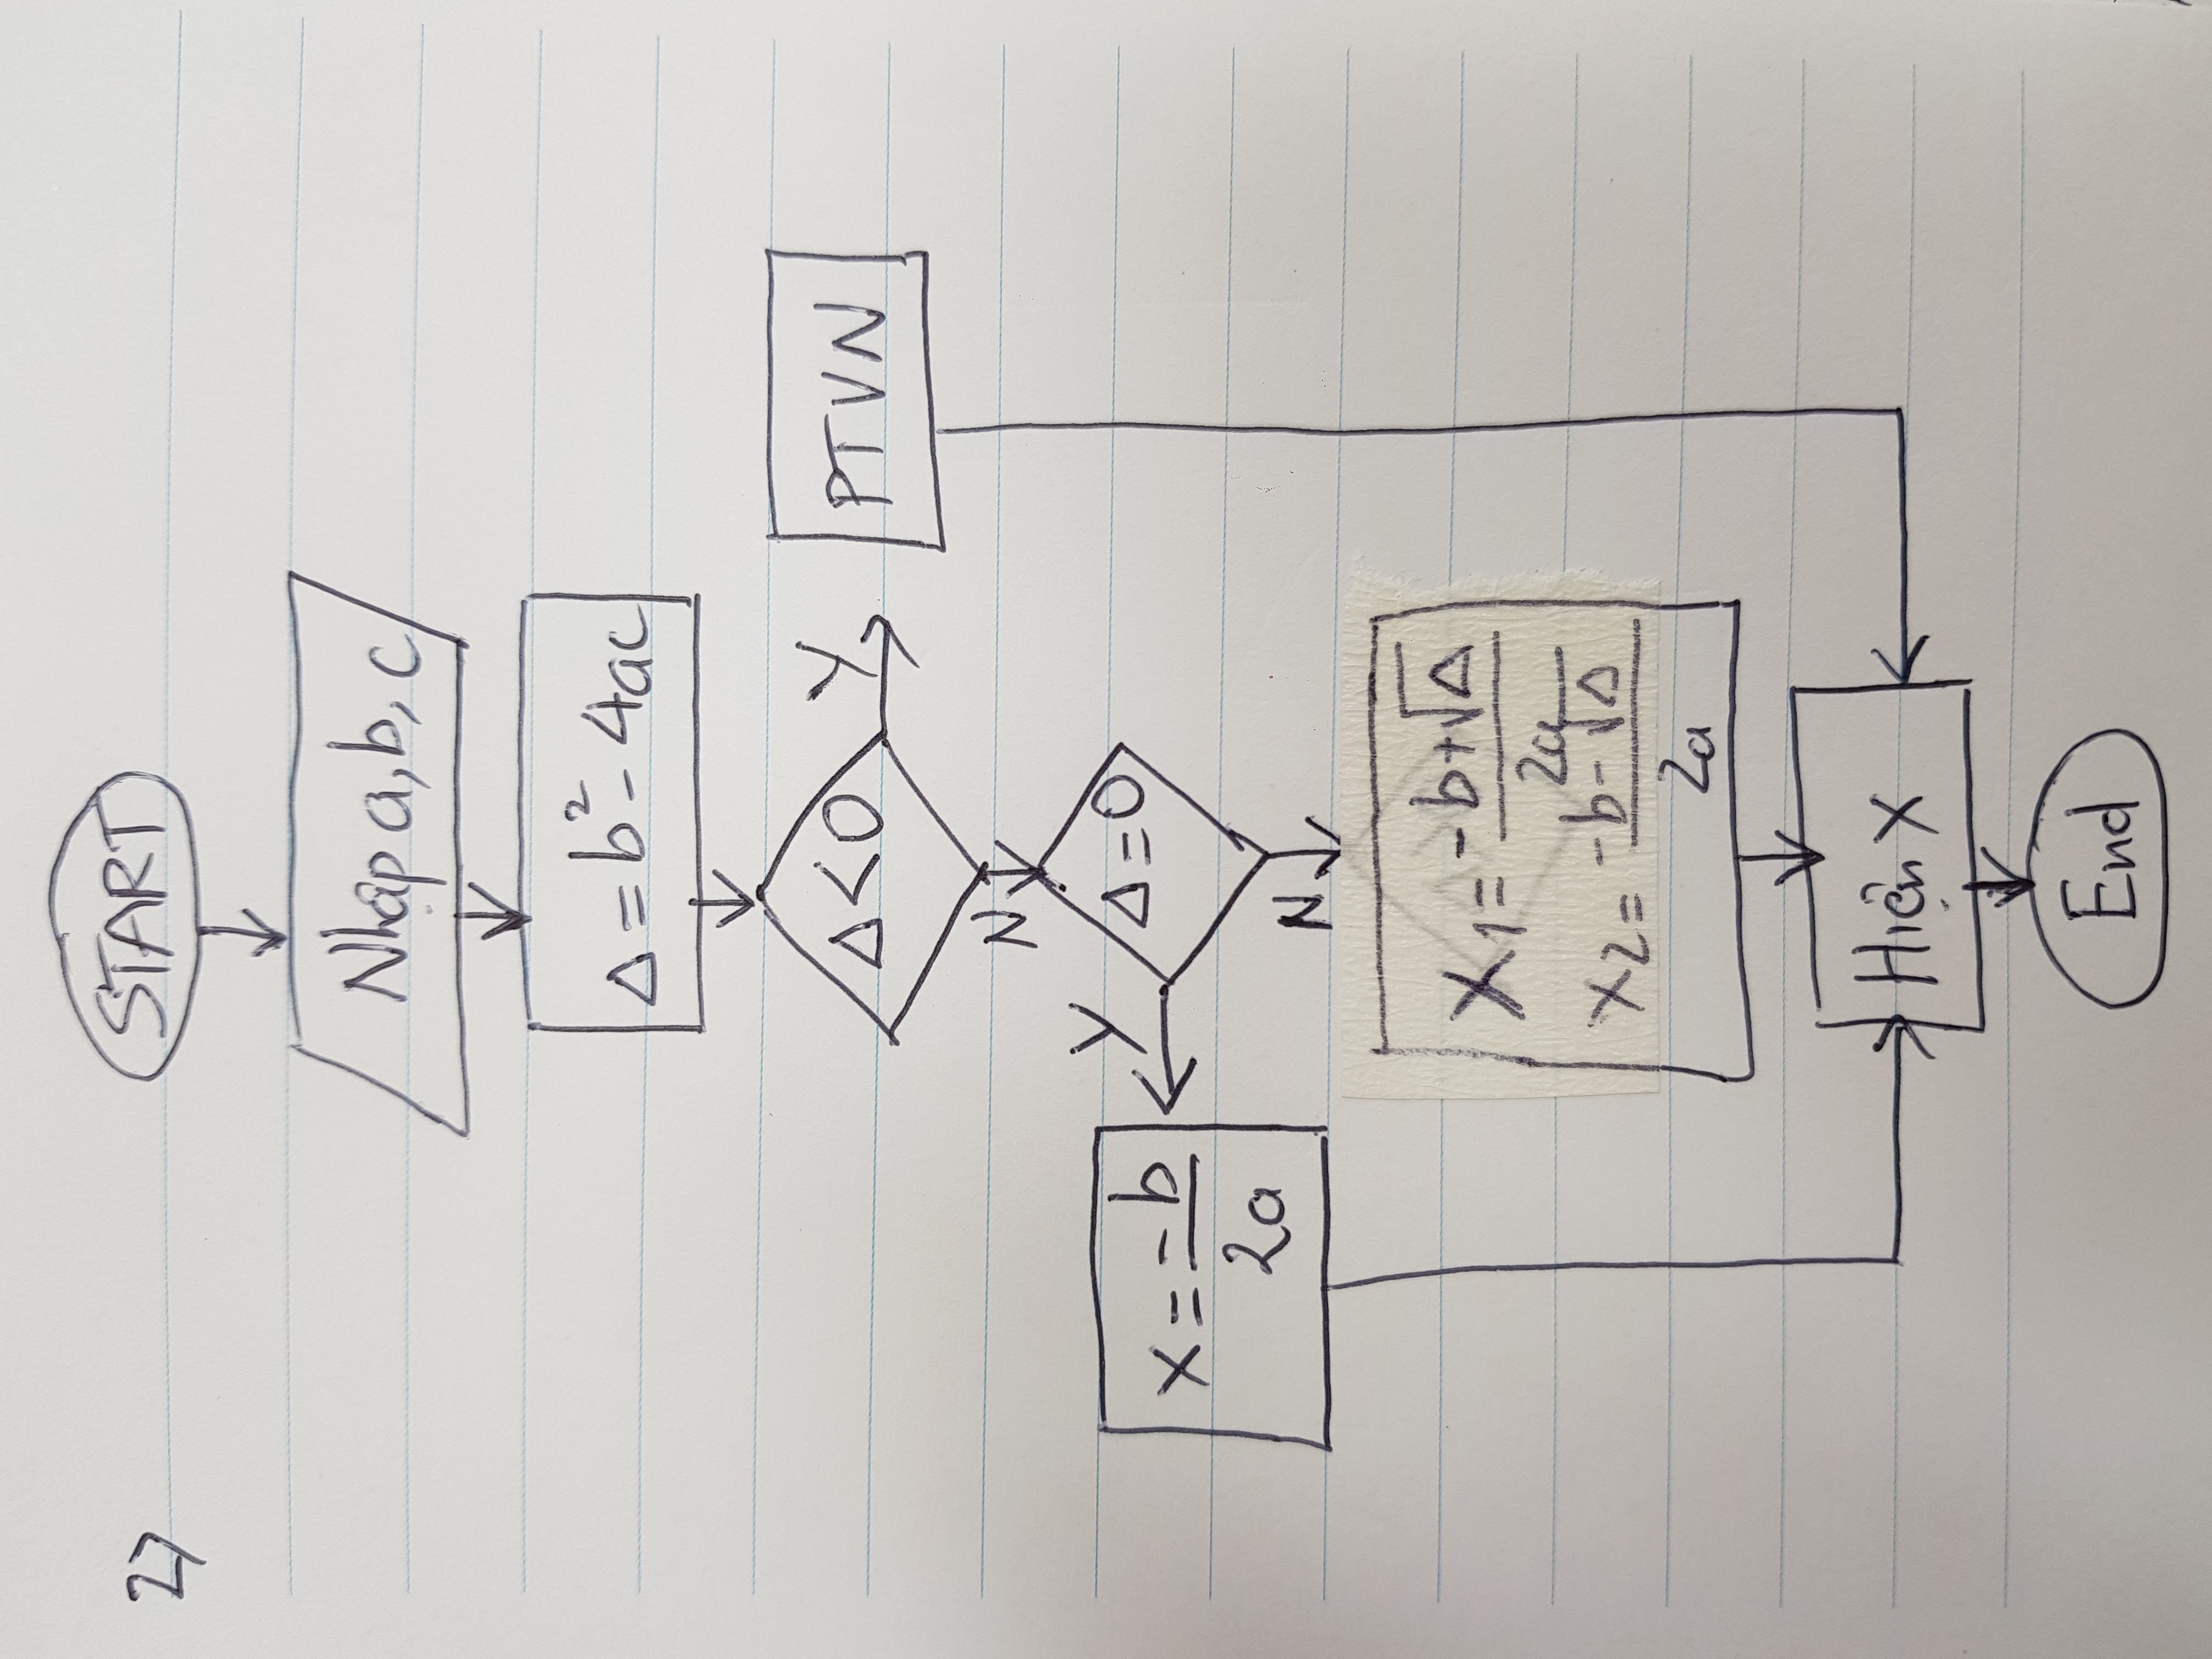 2>
START
Nhập a, b, c
Δ = b² - 4ac
Δ < 0
Y
PTVN
N
Δ = 0
Y
X = -b
2a
N
X1 = -b+√Δ
2a
X2 = -b-√Δ
2a
Hiện X
End